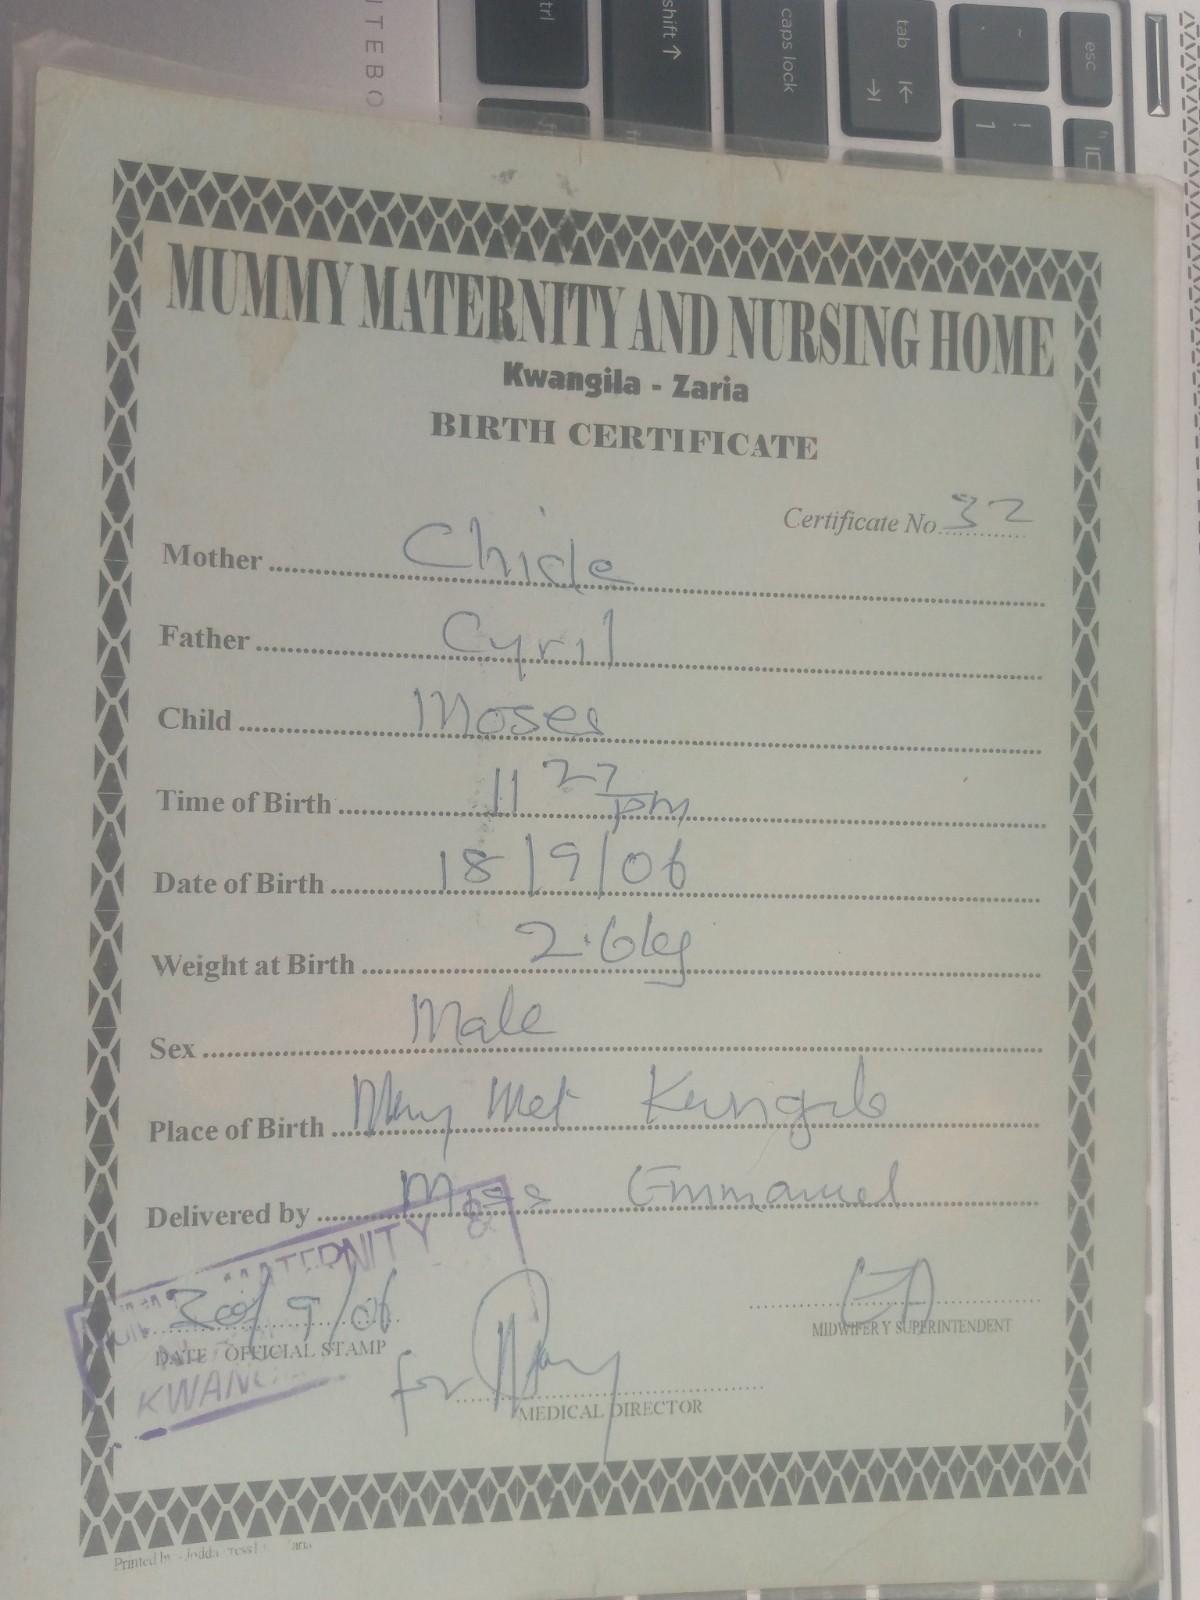 ITEBO
ctrl
shift ↑
caps lock
tab
esc
~
!
1
MUMMY MATERNITY AND NURSING HOME
Kwangila - Zaria
BIRTH CERTIFICATE
Certificate No 32
Mother Chide
Father Cyril
Child Moses
Time of Birth 11 27 pm
Date of Birth 18/9/06
Weight at Birth 2.6kg
Sex Male
Place of Birth
Delivered by Miss Emmanuel
MATERNITY &
20/9/06
DATE OFFICIAL STAMP
KWANG
MIDWIFERY SUPERINTENDENT
for
MEDICAL DIRECTOR
Printed by